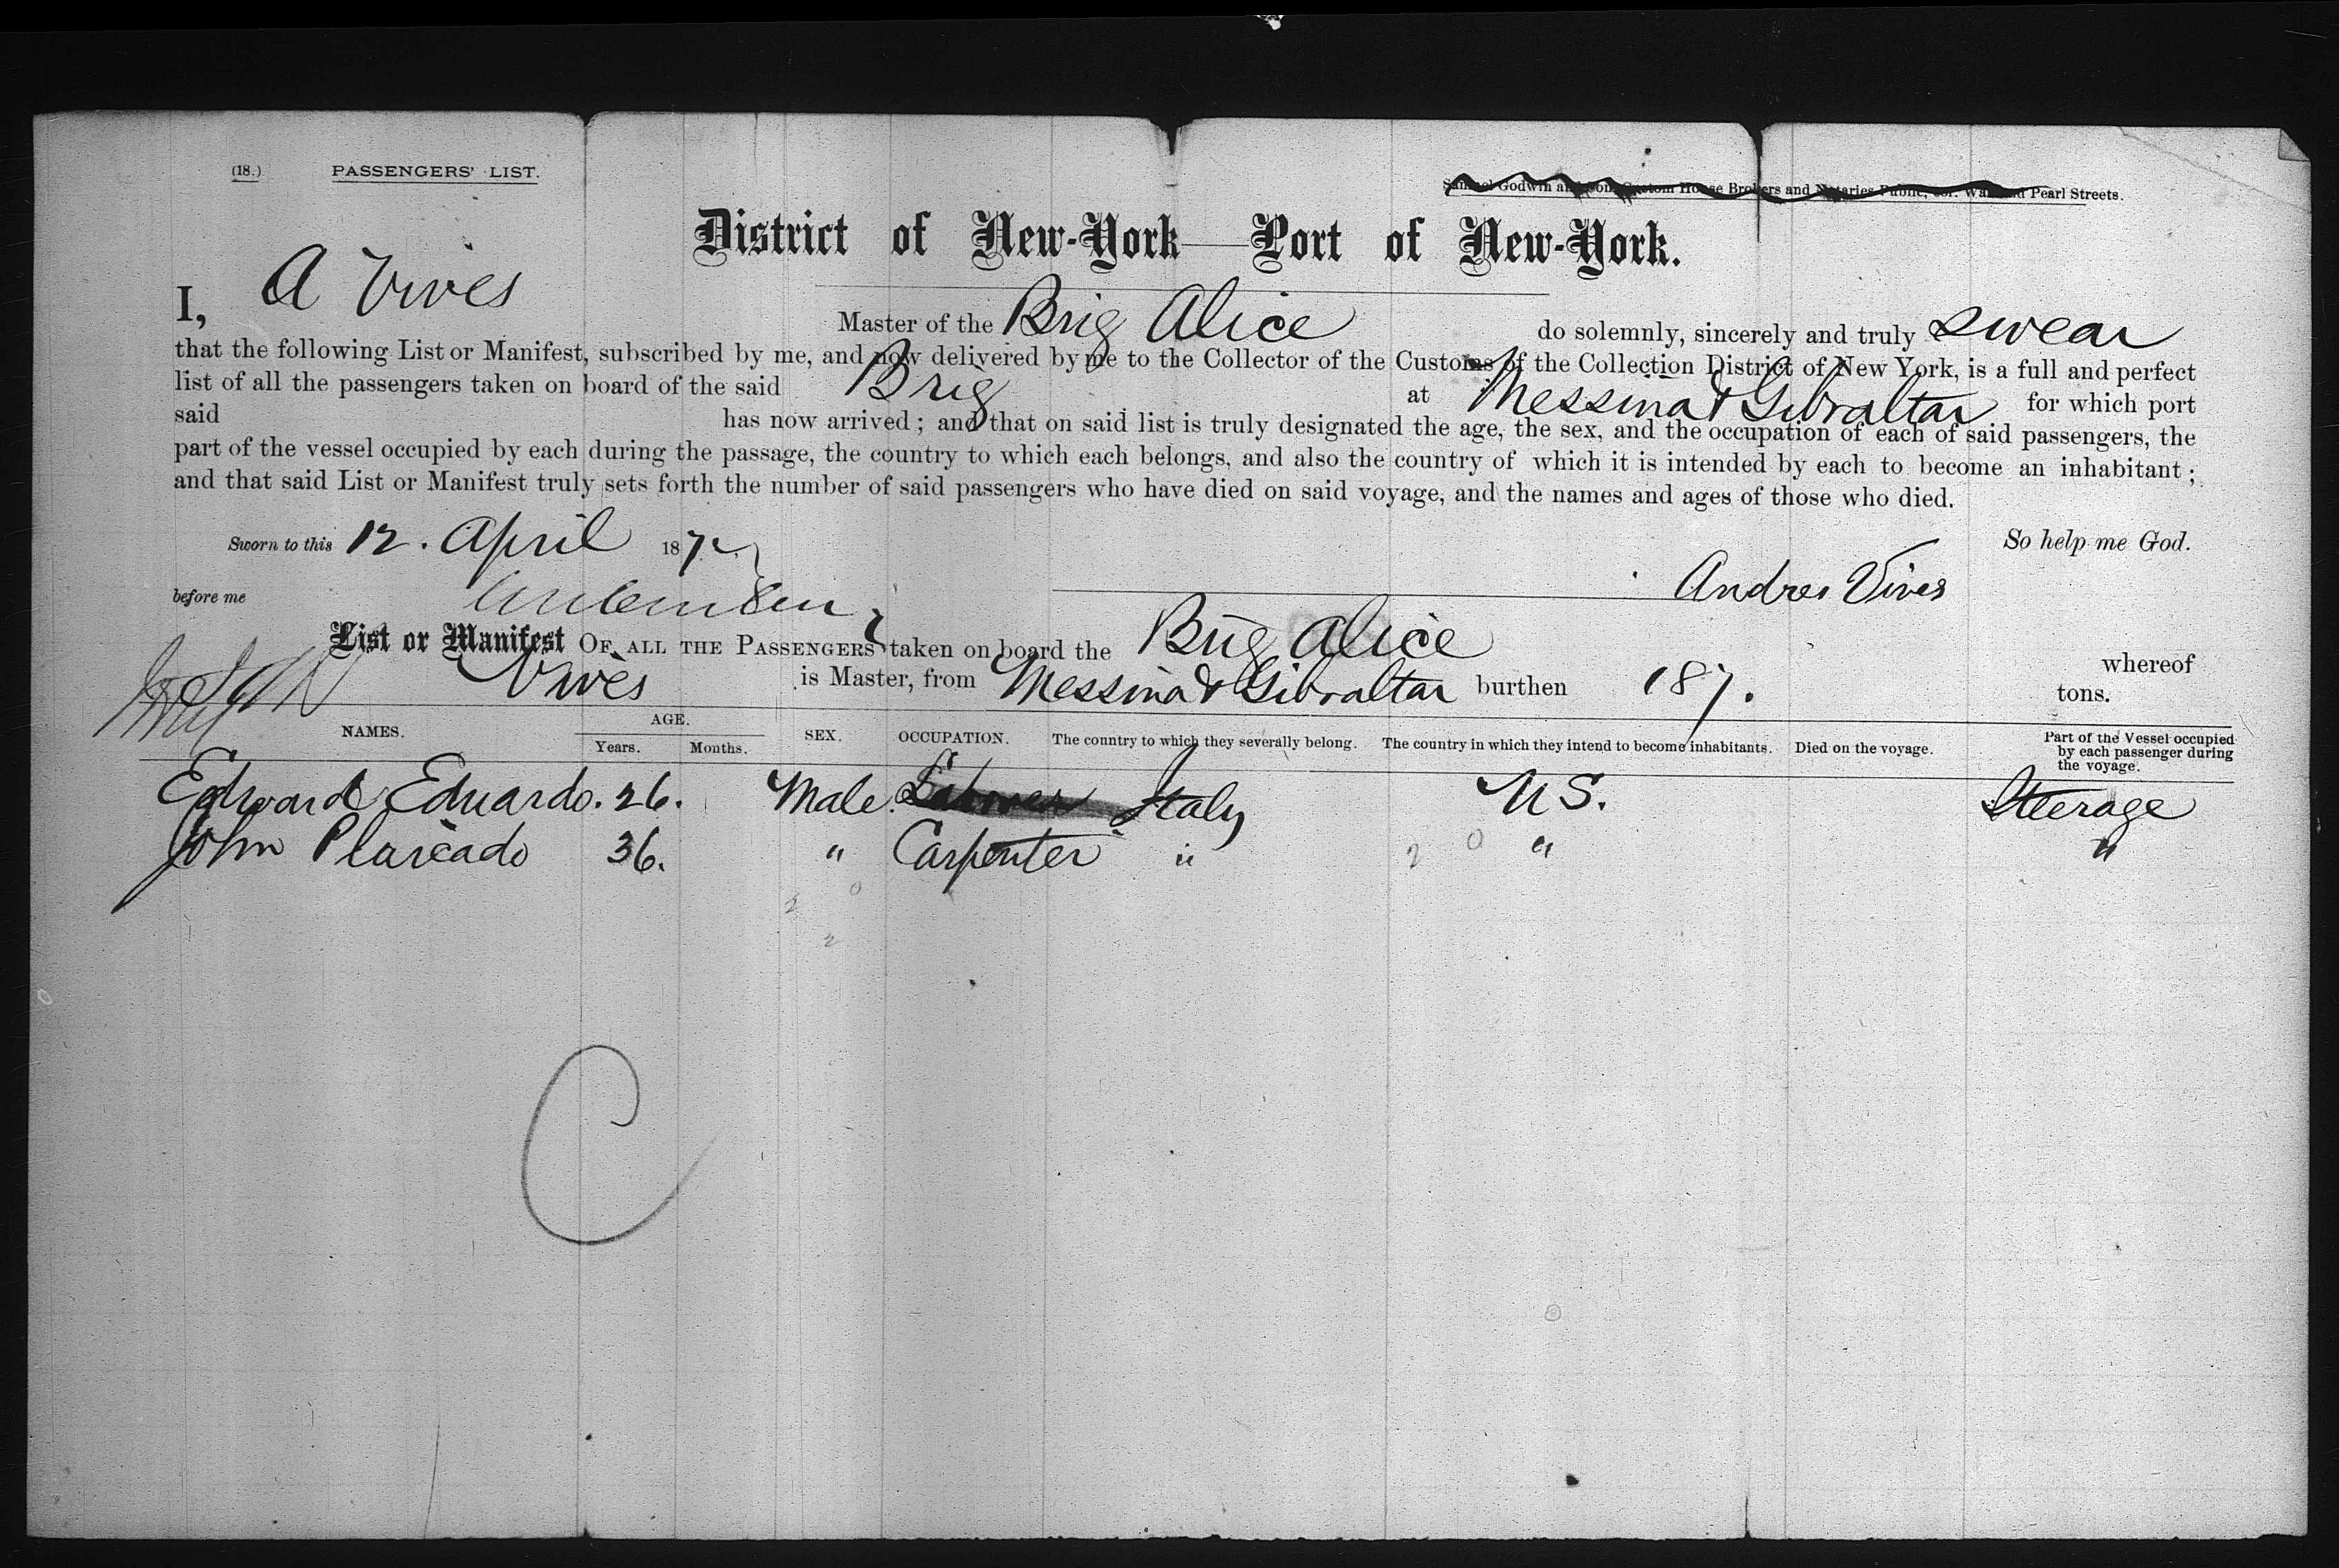 (18.) PASSENGERS' LIST.
Samuel Godwin and Son, Custom House Brokers and Notaries Public, cor. Wall and Pearl Streets.
District of New-York—Port of New-York.
I, A Vives Master of the Brig Alice do solemnly, sincerely and truly swear
that the following List or Manifest, subscribed by me, and now delivered by me to the Collector of the Customs of the Collection District of New York, is a full and perfect
list of all the passengers taken on board of the said Brig at Messina & Gibraltar for which port
said has now arrived; and that on said list is truly designated the age, the sex, and the occupation of each of said passengers, the
part of the vessel occupied by each during the passage, the country to which each belongs, and also the country of which it is intended by each to become an inhabitant;
and that said List or Manifest truly sets forth the number of said passengers who have died on said voyage, and the names and ages of those who died.
Sworn to this 12. April 1872 So help me God.
before me Andres Vives
List or Manifest OF ALL THE PASSENGERS taken on board the Brig Alice whereof
Vives is Master, from Messina & Gibraltar burthen 187. tons.
NAMES. AGE. Years. Months. SEX. OCCUPATION. The country to which they severally belong. The country in which they intend to become inhabitants. Died on the voyage. Part of the Vessel occupied by each passenger during the voyage.
Edward Eduardo. 26. Male. Laborer Italy U S. Steerage
John 36. " Carpenter " 2 0 " "
2 0
2
C